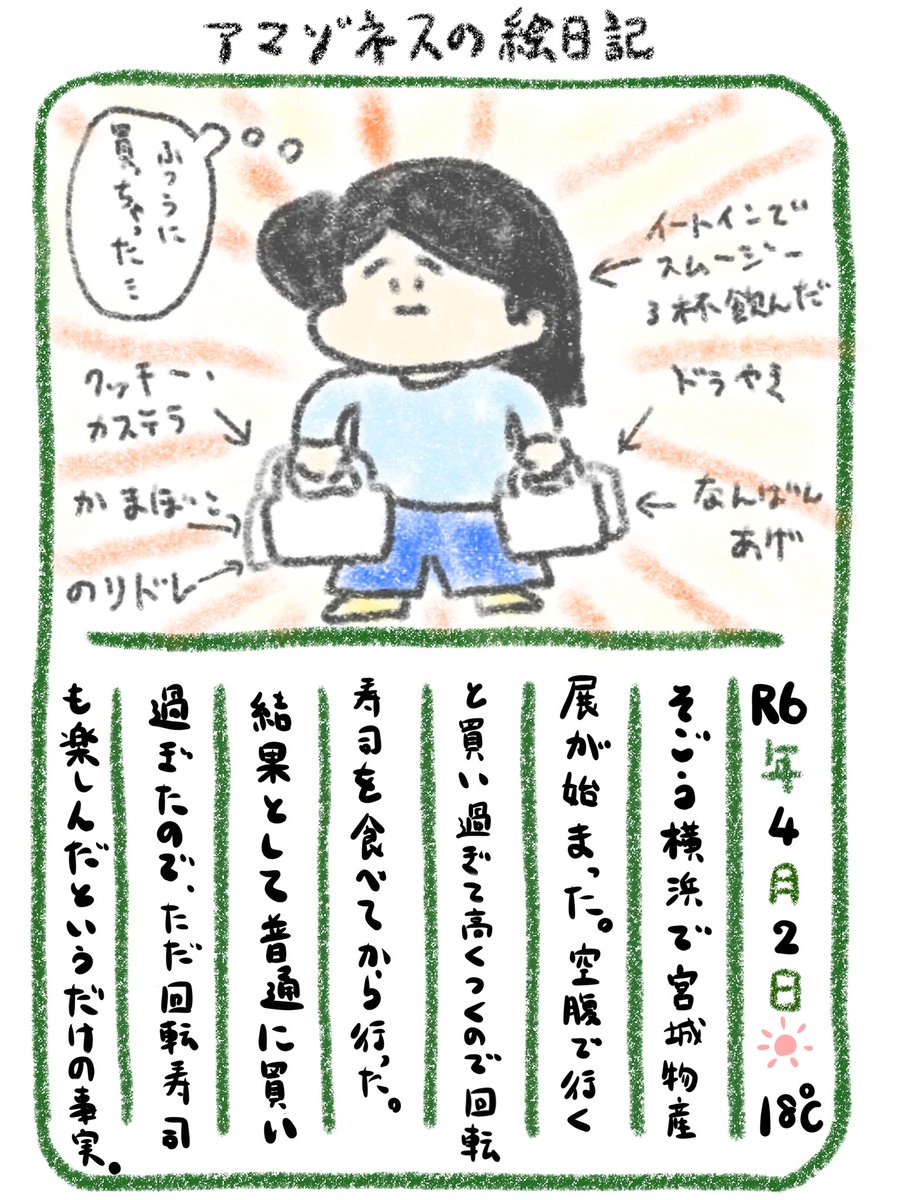 アマゾネスの絵日記
ふつうに
買っちゃった…
イートインで
スムージー
3杯飲んだ
クッキー、
カステラ
ドラやき
かまぼこ
なんばん
あげ
のりドレ
R6年4月2日 18℃
そごう横浜で宮城物産
展が始まった。空腹で行く
と買い過ぎて高くつくので回転
寿司を食べてから行った。
結果として普通に買い
過ぎたので、ただ回転寿司
も楽しんだというだけの事実。